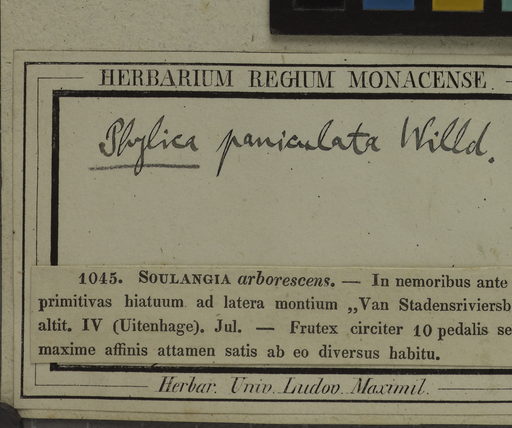 HERBARIUM REGIUM MONACENSE
Phylica paniculata Willd.
1045. SOULANGIA arborescens. — In nemoribus ante
primitivas hiatuum ad latera montium „Van Stadensriviersb
altit. IV (Uitenhage). Jul. — Frutex circiter 10 pedalis se
maxime affinis attamen satis ab eo diversus habitu.
Herbar. Univ. Ludov. Maximil.